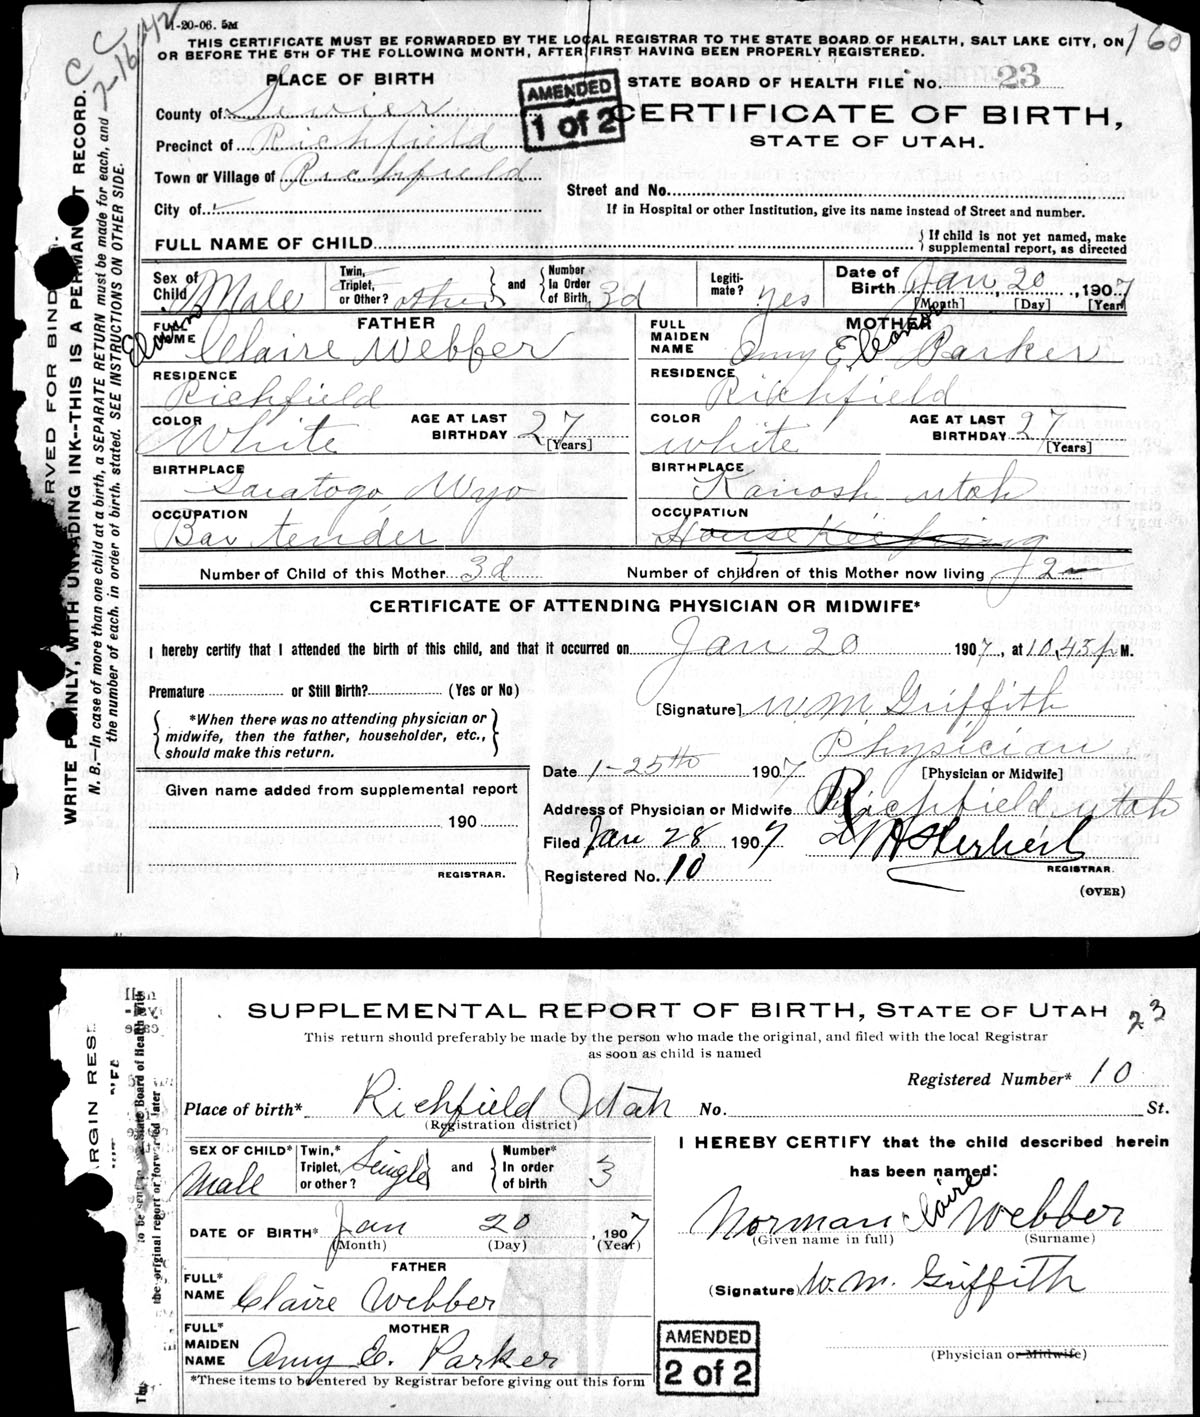 1-20-06. 5M
C C
2-16-42
THIS CERTIFICATE MUST BE FORWARDED BY THE LOCAL REGISTRAR TO THE STATE BOARD OF HEALTH, SALT LAKE CITY, ON
OR BEFORE THE 5TH OF THE FOLLOWING MONTH, AFTER FIRST HAVING BEEN PROPERLY REGISTERED.
160
PLACE OF BIRTH
AMENDED
1 of 2
STATE BOARD OF HEALTH FILE No. 23
County of Sevier
CERTIFICATE OF BIRTH,
Precinct of Richfield
STATE OF UTAH.
Town or Village of Richfield
Street and No.
City of
If in Hospital or other Institution, give its name instead of Street and number.
FULL NAME OF CHILD
If child is not yet named, make
supplemental report, as directed
Sex of Child Male
Twin, Triplet, or Other? other and Number In Order of Birth 3d
Legiti-mate? yes
Date of Birth Jan 20, 1907
[Month] [Day] [Year]
FATHER
FULL NAME Claire Webber
RESIDENCE
Richfield
COLOR White
AGE AT LAST BIRTHDAY 27
[Years]
BIRTHPLACE
Saratogo Wyo
OCCUPATION
Bar tender
MOTHER
FULL MAIDEN NAME Amy Eleanor Parker
RESIDENCE
Richfield
COLOR white
AGE AT LAST BIRTHDAY 27
[Years]
BIRTHPLACE
Kanosh utah
OCCUPATION
House Keeping
Number of Child of this Mother 3d
Number of children of this Mother now living 2
CERTIFICATE OF ATTENDING PHYSICIAN OR MIDWIFE*
I hereby certify that I attended the birth of this child, and that it occurred on Jan 20 1907, at 10.45 p M.
Premature or Still Birth? (Yes or No)
[Signature] W. M. Griffith
*When there was no attending physician or
midwife, then the father, householder, etc.,
should make this return.
Physician
[Physician or Midwife]
Date 1-25th 1907
Given name added from supplemental report
Address of Physician or Midwife Richfield utah
190
Filed Jan 28 1907
REGISTRAR.
Registered No. 10
REGISTRAR.
(OVER)
RVED FOR BIND
WRITE PLAINLY, WITH UNFADING INK--THIS IS A PERMANENT RECORD.
N. B.—In case of more than one child at a birth, a SEPARATE RETURN must be made for each, and
the number of each, in order of birth, stated. SEE INSTRUCTIONS ON OTHER SIDE.
SUPPLEMENTAL REPORT OF BIRTH, STATE OF UTAH
23
This return should preferably be made by the person who made the original, and filed with the local Registrar
as soon as child is named
Registered Number* 10
Place of birth* Richfield Utah No. St.
(Registration district)
SEX OF CHILD* Male
Twin,* Triplet, or other? Single and Number* In order of birth 3
DATE OF BIRTH* Jan 20, 1907
(Month) (Day) (Year)
FATHER
FULL* NAME Claire Webber
MOTHER
FULL* MAIDEN NAME Amy E. Parker
*These items to be entered by Registrar before giving out this form
I HEREBY CERTIFY that the child described herein
has been named:
Norman Claire Webber
(Given name in full) (Surname)
(Signature) W. M. Griffith
(Physician or Midwife)
AMENDED
2 of 2
ARGIN RESE
to be sent to State Board of Health with
the original report or forwarded later